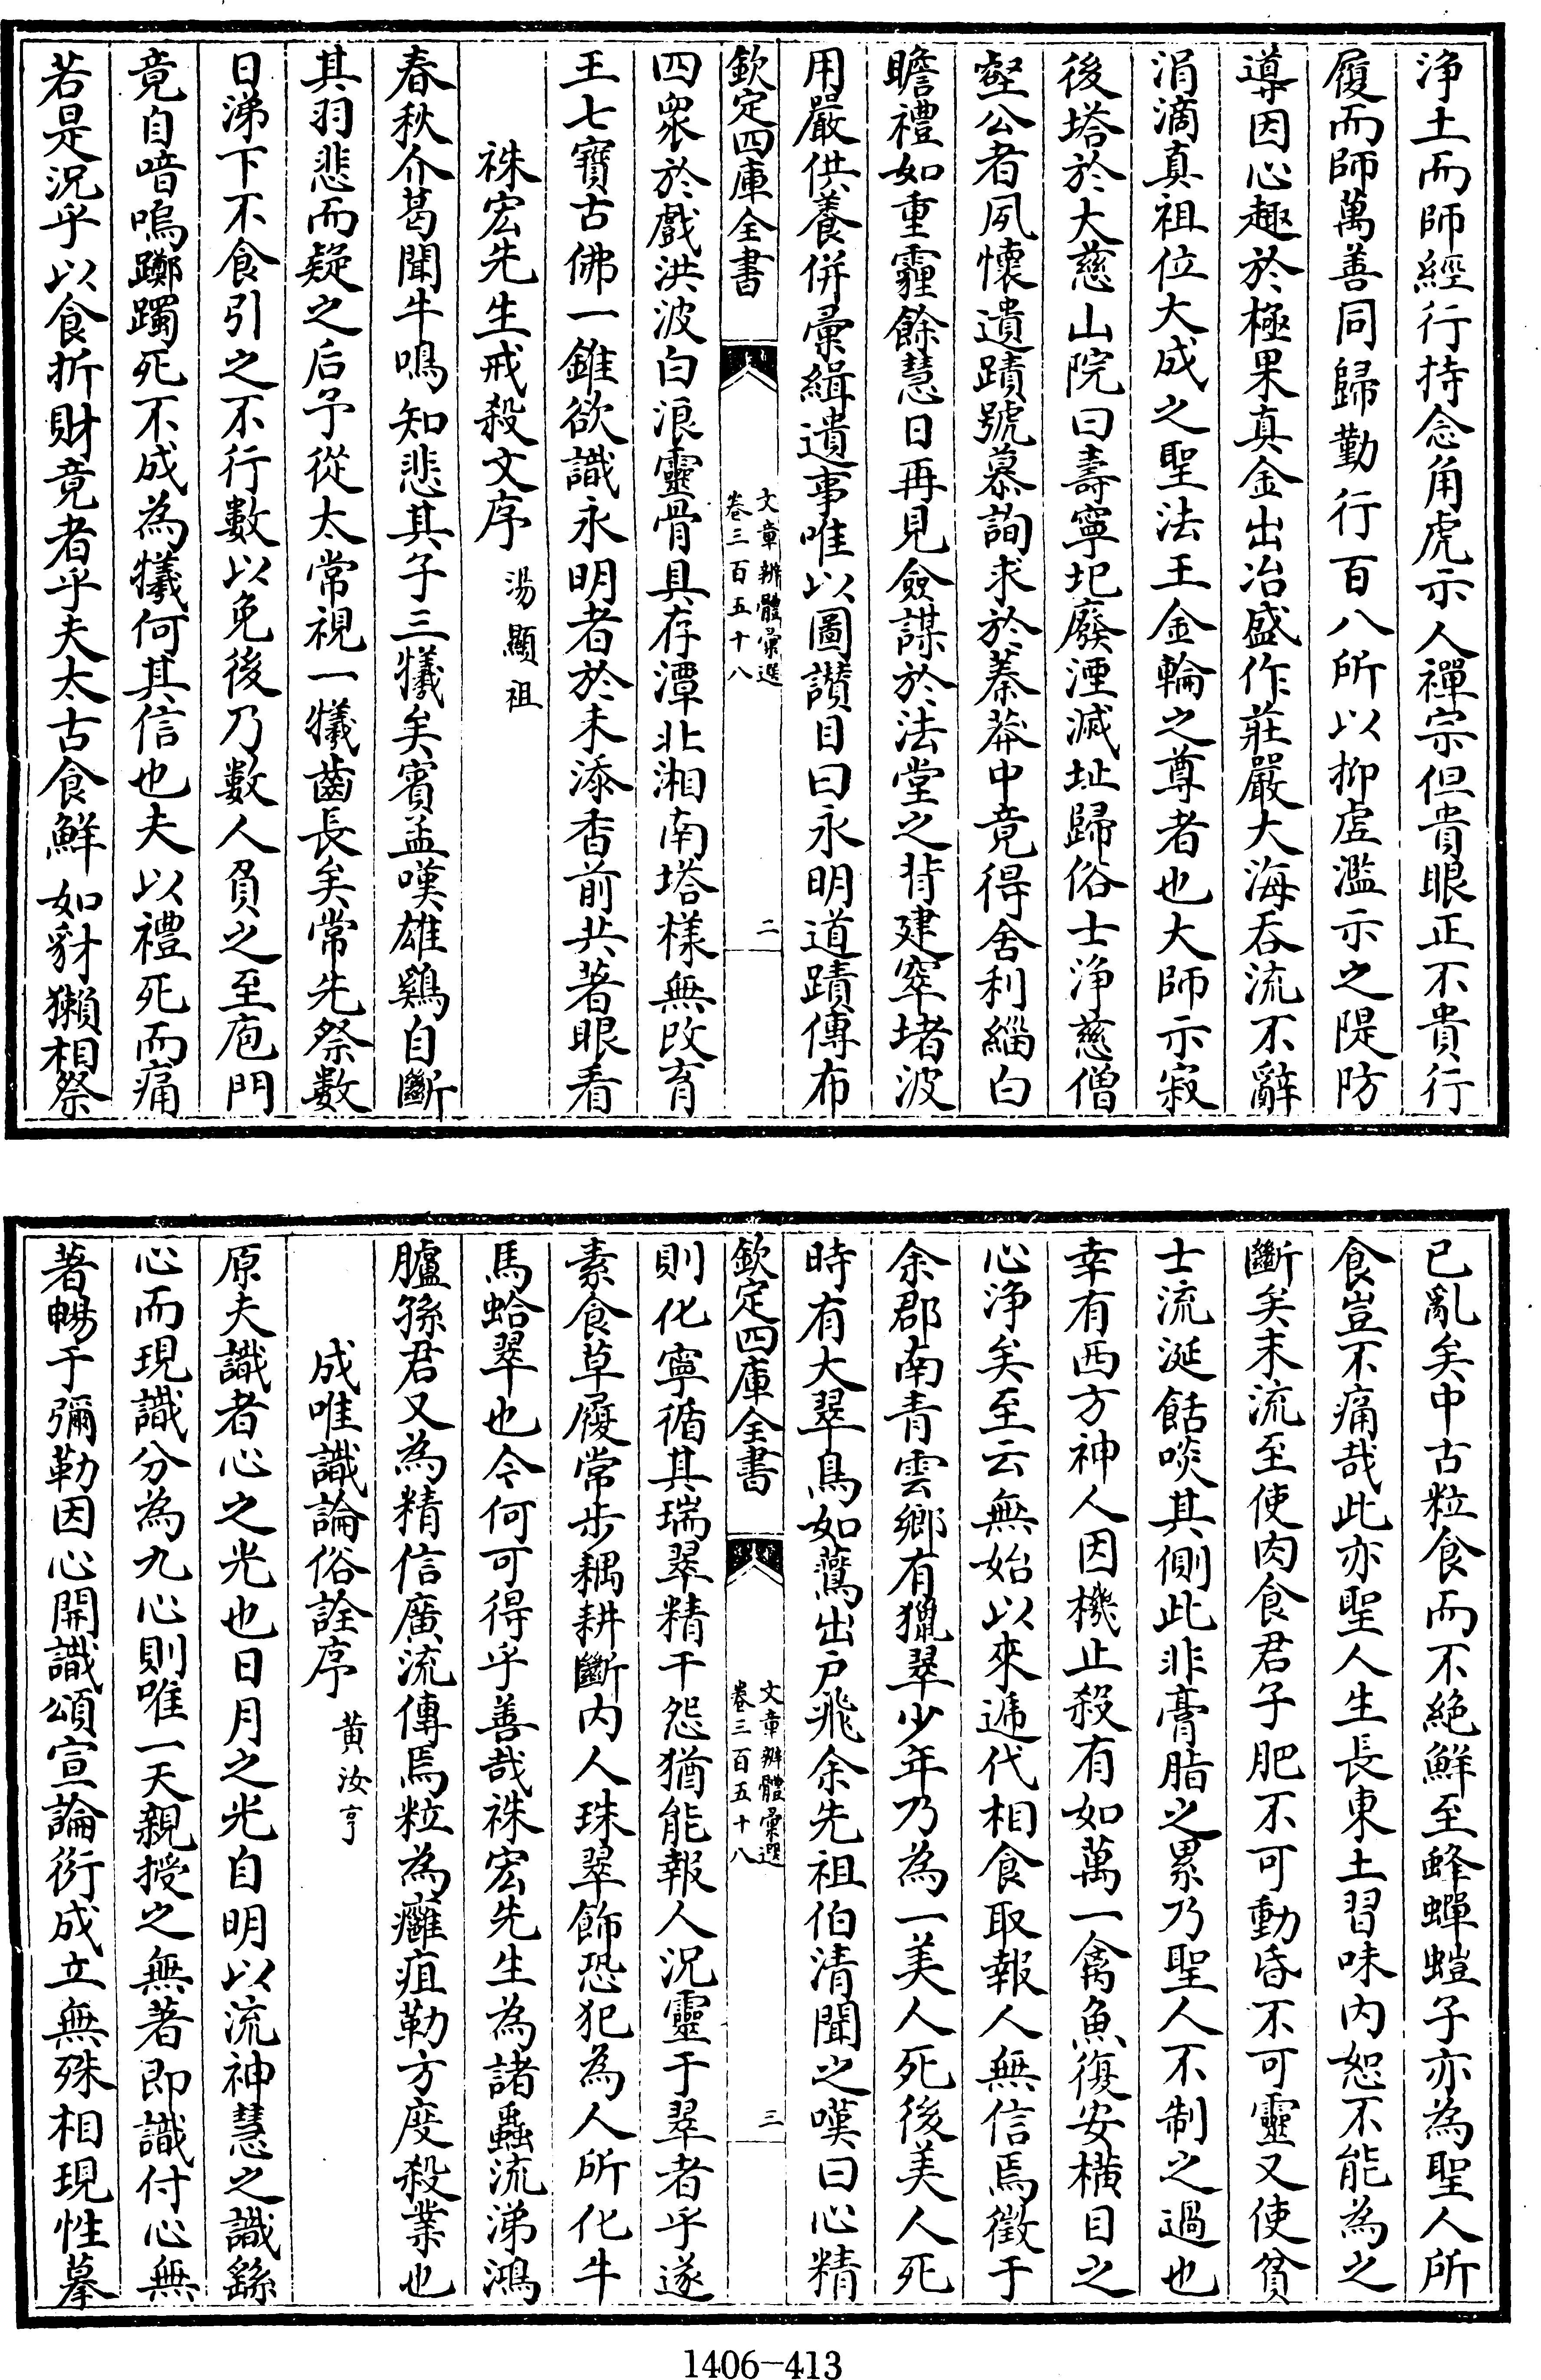 浄土而師經行持念角虎示人禪宗但貴眼正不貴行
履而師萬善同歸勤行百八所以抑虚濫示之隄防
導因心趣於極果真金出冶盛作莊嚴大海吞流不辭
涓滴真祖位大成之聖法王金輪之尊者也大師示寂
後塔於大慈山院曰壽寧圯廢湮滅址歸俗士浄慈僧
壑公者夙懷遺蹟號慕詢求於蓁莽中竟得舍利緇白
瞻禮如重霾餘慧日再見僉謀於法堂之背建窣堵波
用嚴供養併彚緝遺事唯以圖讃目曰永明道蹟傳布
欽定四庫全書
文章辨體彚選
卷三百五十八
二
四衆於戲洪波白浪靈骨具存潭北湘南塔樣無改育
王七寶古佛一錐欲識永明者於未添香前共著眼看
祩宏先生戒殺文序 湯顯祖
春秋介葛聞牛鳴知悲其子三犧矣賓孟嘆雄鷄自斷
其羽悲而疑之后予從太常視一犧齒長矣常先祭數
日涕下不食引之不行數以免後乃數人負之至庖門
竟自喑嗚躑躅死不成為犧何其信也夫以禮死而痛
若是況乎以食折財竟者乎夫太古食鮮如豺獺相祭
已亂矣中古粒食而不絶鮮至蜂蟬螘子亦為聖人所
食豈不痛哉此亦聖人生長東土習味内恕不能為之
斷矣末流至使肉食君子肥不可動昏不可靈又使貧
士流涎餂啖其側此非膏脂之累乃聖人不制之過也
幸有西方神人因機止殺有如萬一禽魚復安横目之
心浄矣至云無始以來遞代相食取報人無信焉徵于
余郡南青雲鄉有獵翠少年乃為一美人死後美人死
時有大翠鳥如鷰出户飛余先祖伯清聞之嘆曰心精
欽定四庫全書
文章辨體彚選
卷三百五十八
三
則化寧循其瑞翠精干怨猶能報人況靈于翠者乎遂
素食草履常步耦耕斷内人珠翠飾恐犯為人所化牛
馬蛤翠也今何可得乎善哉祩宏先生為諸蟲流涕鴻
臚孫君又為精信廣流傳焉粒為癰疽勒方度殺業也
成唯識論俗詮序 黄汝亨
原夫識者心之光也日月之光自明以流神慧之識繇
心而現識分為九心則唯一天親授之無著即識付心無
著暢于彌勒因心開識頌宣論衍成立無殊相現性摹
1406-413